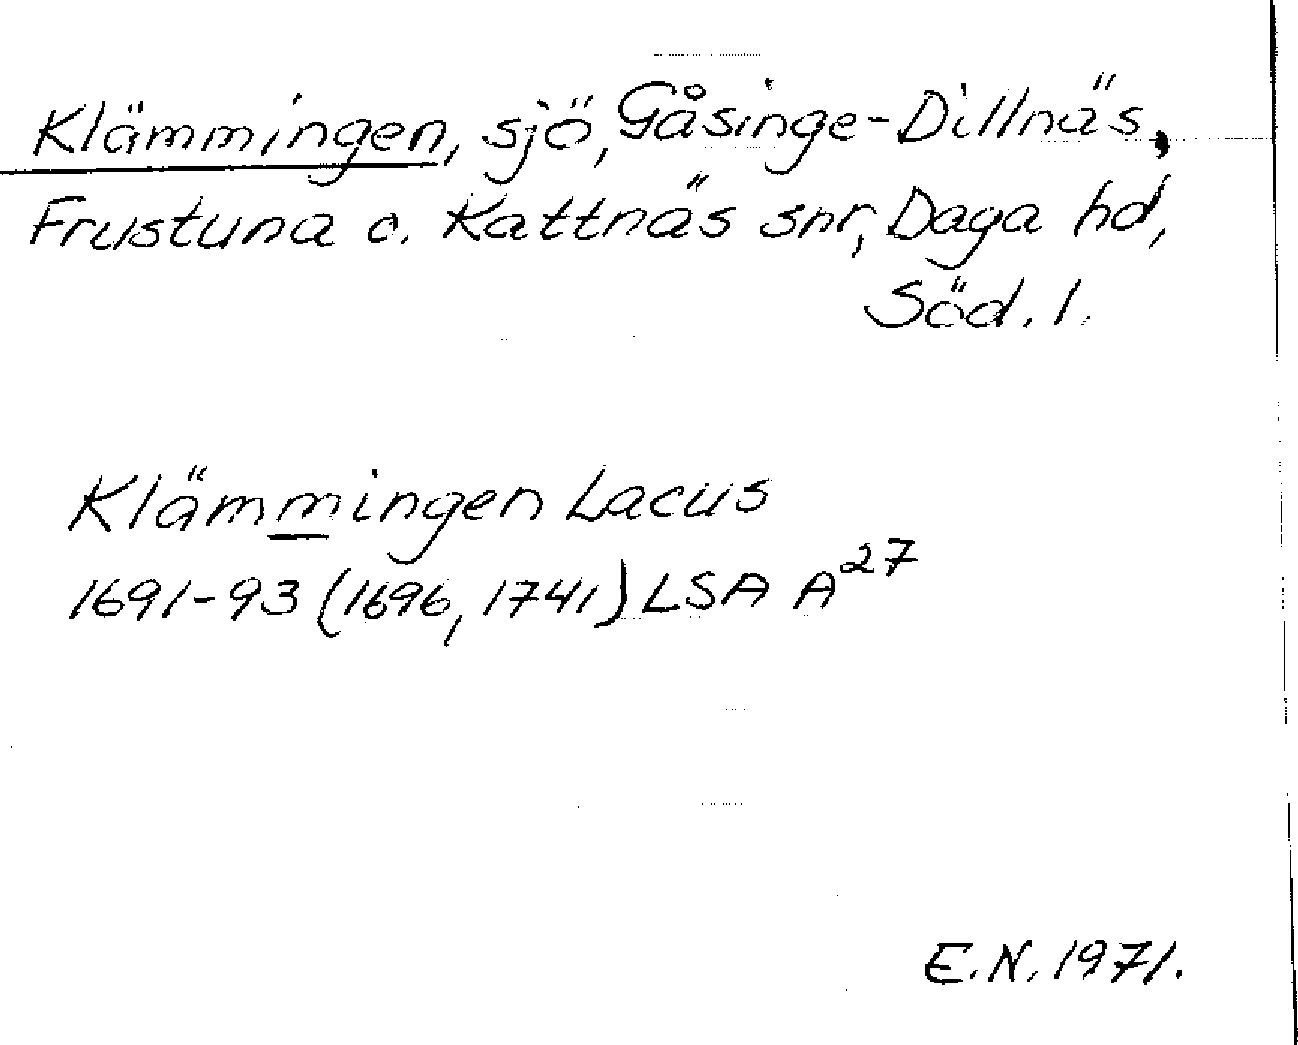 Klämmingen, sjö, Gåsinge-Dillnäs,
Frustuna o. Kattnäs snr, Daga hd,
Söd. l.
Klämmingen Lacus
1691-93 (1696, 1741) LSA A27
E.N. 1971.